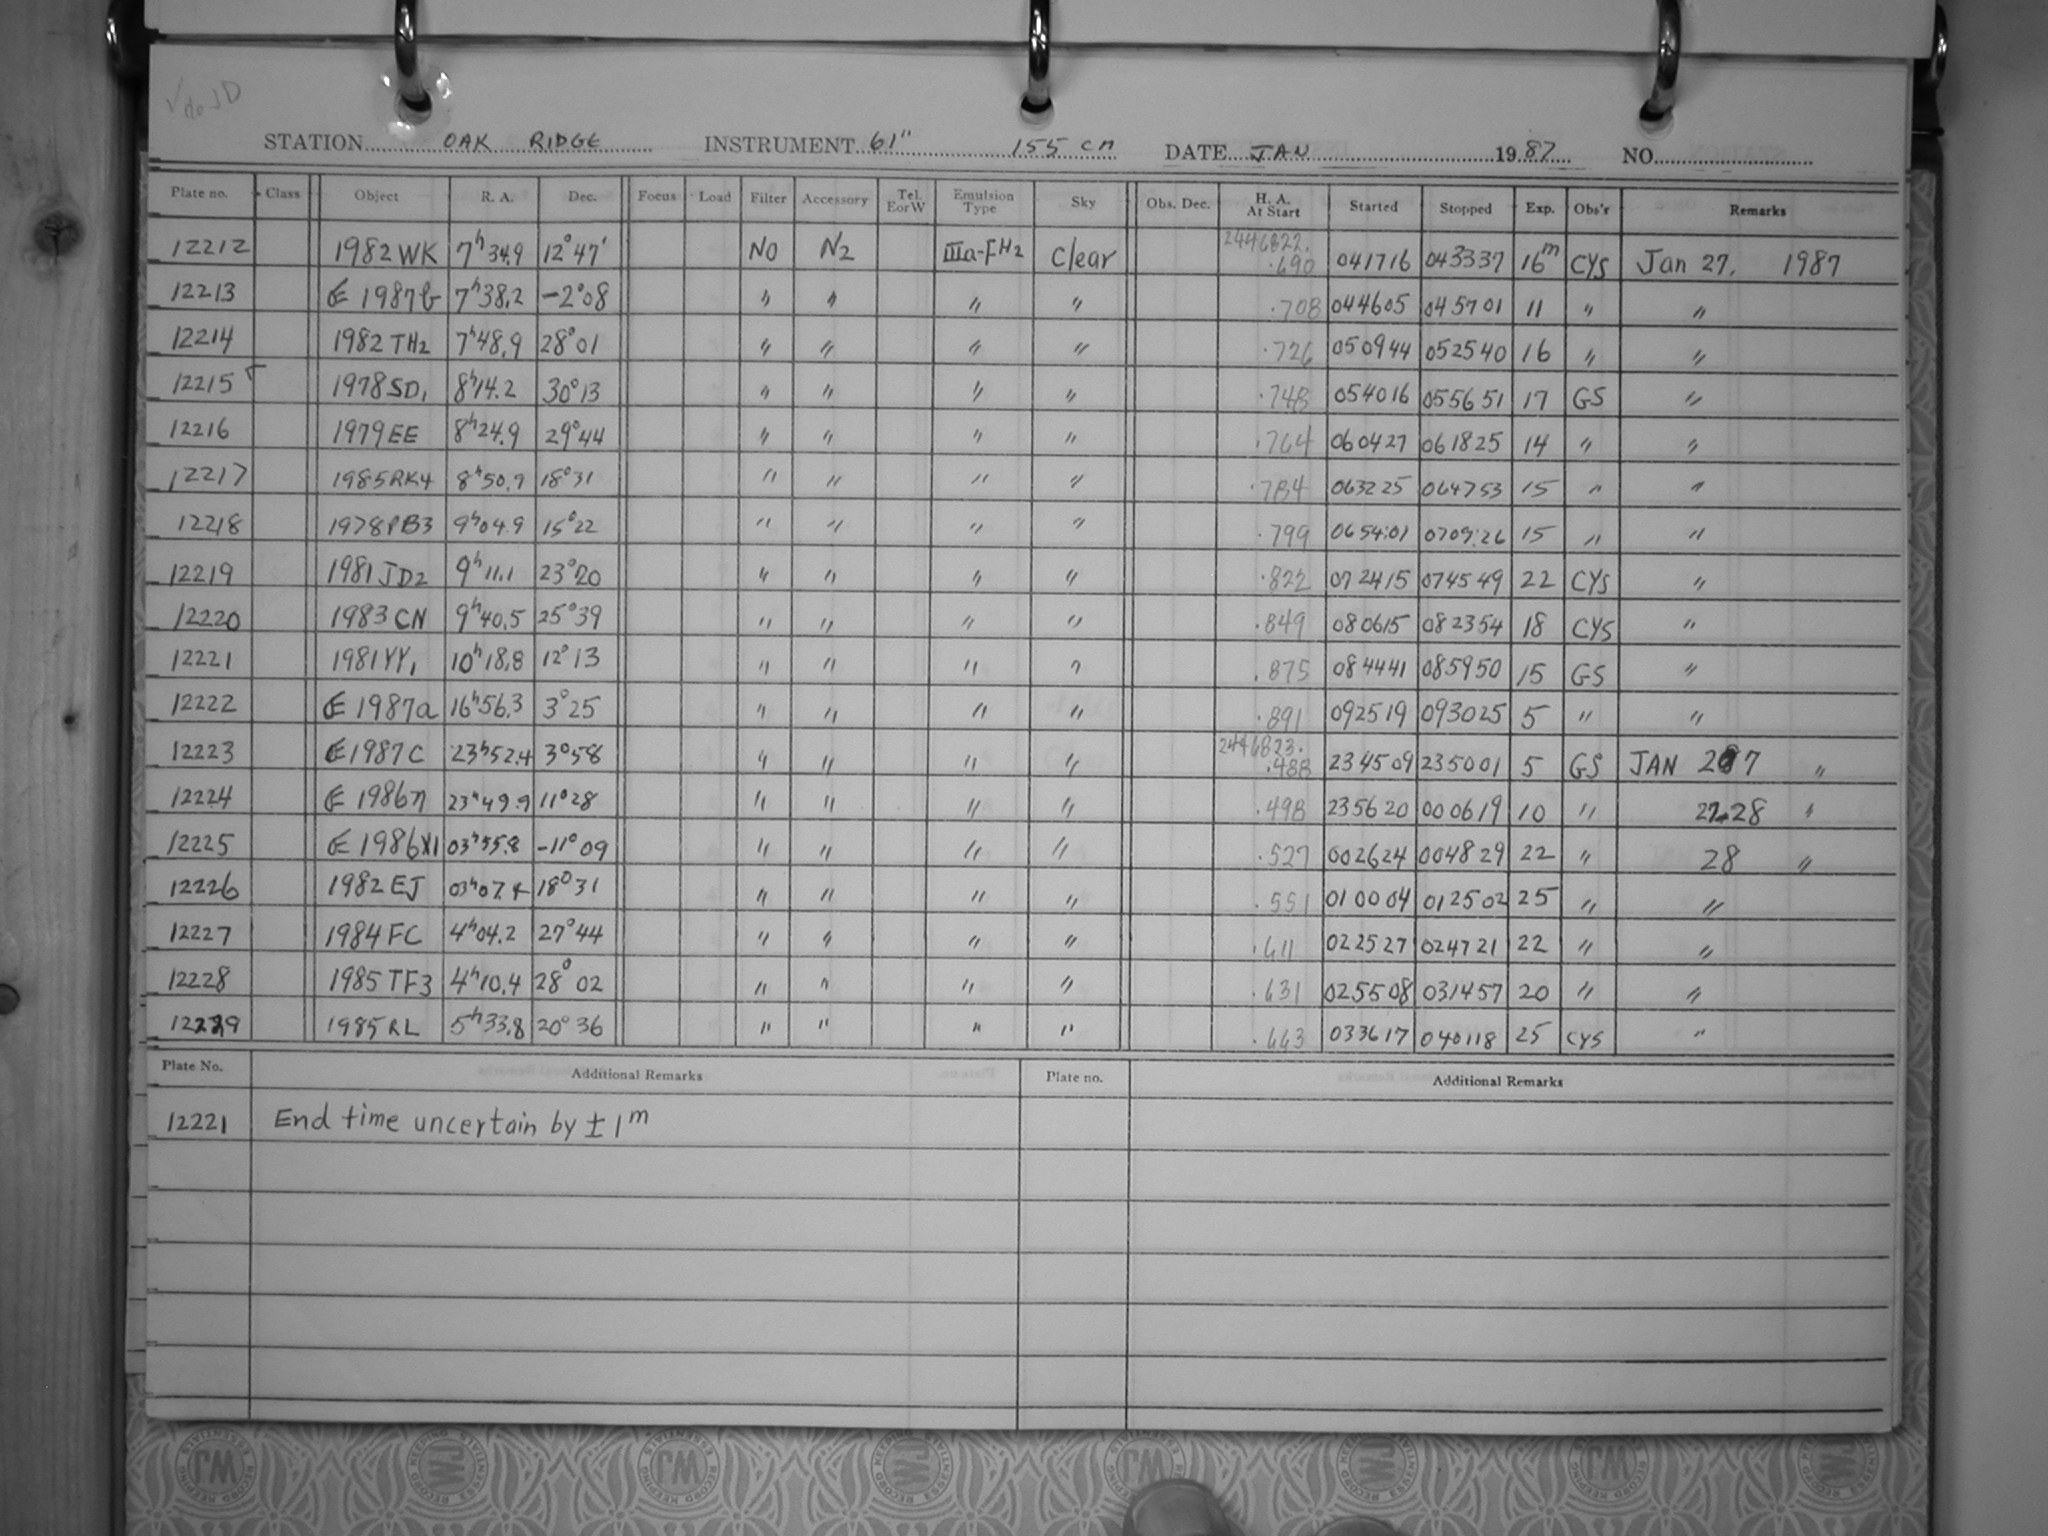 √ no JD
STATION OAK RIDGE INSTRUMENT 61" 155 cm DATE JAN 1987 NO.
Plate no. Class Object R. A. Dec. Focus Load Filter Accessory Tel. E or W Emulsion Type Sky Obs. Dec. H. A. At Start Started Stopped Exp. Obs'r Remarks
12212 1982 WK 7h 34.9 12° 47' NO N2 IIIa-F H2 clear 2446822. .690 041716 043337 16m CYS Jan 27, 1987
12213 1987b 7h38.2 -2°08 " " " " .708 044605 045701 11 " "
12214 1982 TH2 7h48.9 28°01 " " " " .726 050944 052540 16 " "
12215 1978 SD1 8h14.2 30°13 " " " " .748 054016 055651 17 GS "
12216 1979 EE 8h24.9 29°44 " " " " .764 060427 061825 14 " "
12217 1985RK4 8h50.9 18°31 " " " " .784 063225 064753 15 " "
12218 1978PB3 9h04.9 15°22 " " " " .799 0654:01 0709:26 15 " "
12219 1981 JD2 9h11.1 23°20 " " " " .822 072415 074549 22 CYS "
12220 1983 CN 9h40.5 25°39 " " " " .849 080615 082354 18 CYS "
12221 1981 YY1 10h18.8 12°13 " " " " .875 084441 085950 15 GS "
12222 1987a 16h56.3 3°25 " " " " .891 092519 093025 5 " "
12223 1987C 23h52.4 3°58 " " " " 2446823. .488 234509 235001 5 GS JAN 27 "
12224 1986n 23h49.9 11°28 " " " " .498 235620 000619 10 " 27-28 "
12225 1986 03h55.8 -11°09 " " " " .527 002624 004829 22 " 28 "
12226 1982 EJ 03h07.4 18°31 " " " " .551 010004 012502 25 " "
12227 1984 FC 4h04.2 27°44 " " " " .611 022527 024721 22 " "
12228 1985 TF3 4h10.4 28° 02 " " " " .631 025508 031457 20 " "
12229 1985 RL 5h33.8 20° 36 " " " " .663 033617 040118 25 CYS "
Plate No. Additional Remarks Plate no. Additional Remarks
12221 End time uncertain by ± 1m